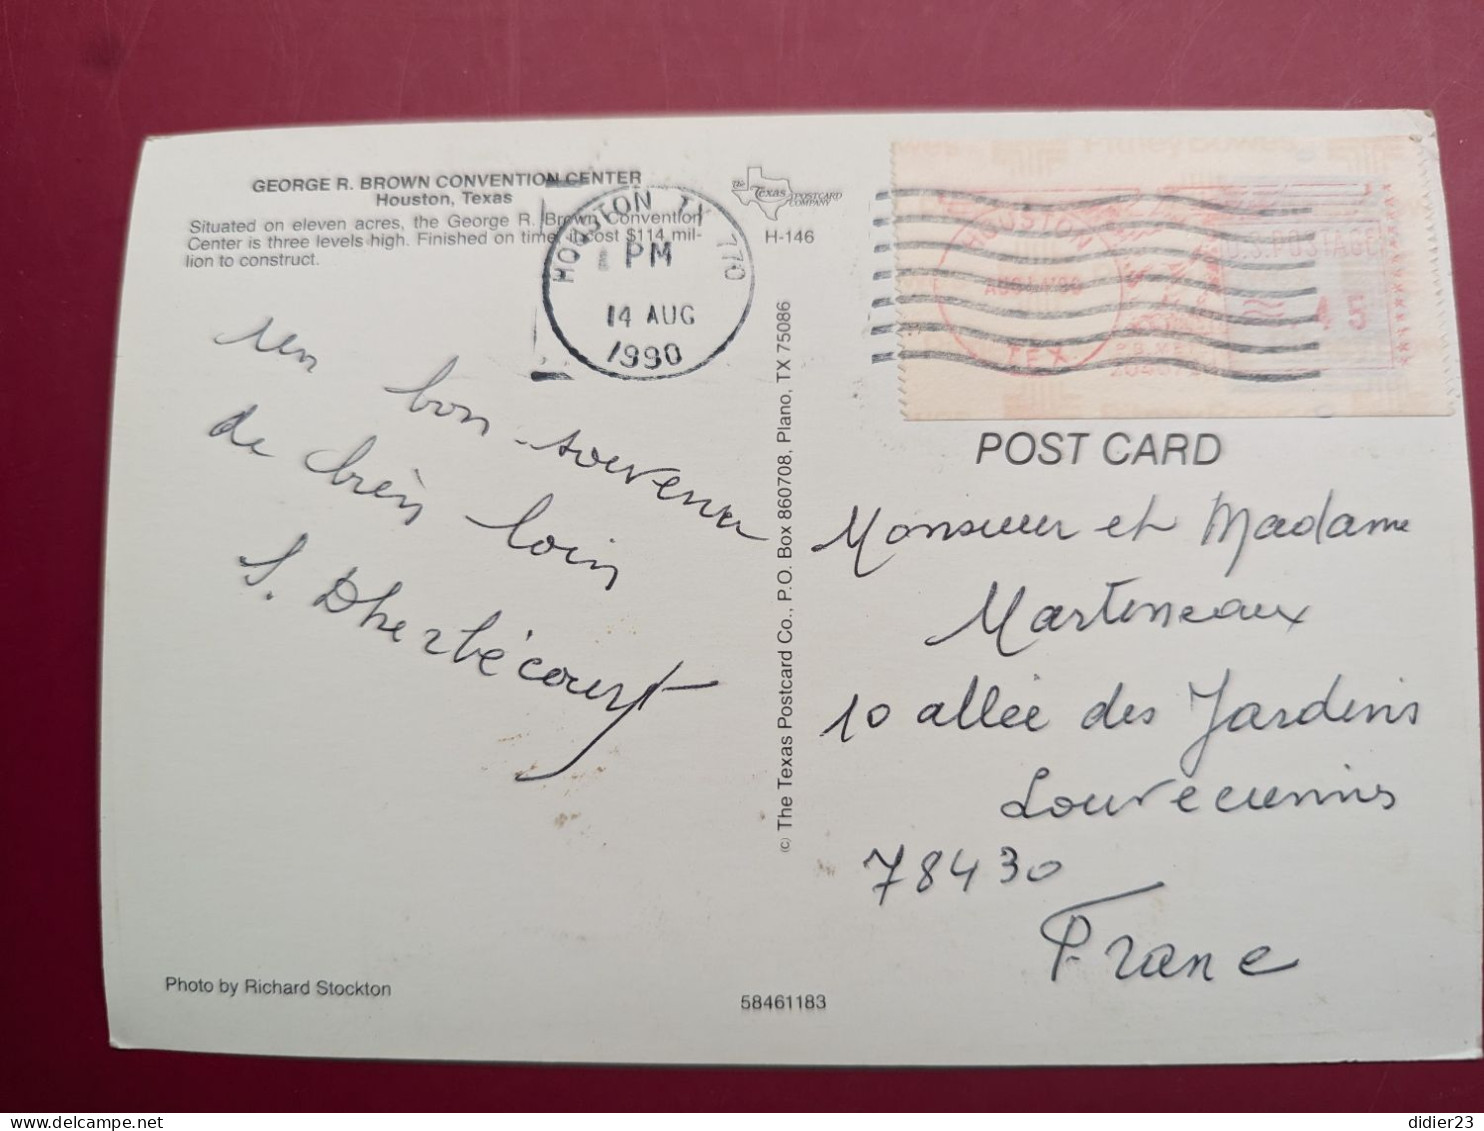 GEORGE R. BROWN CONVENTION CENTER
Houston, Texas
Situated on eleven acres, the George R. Brown Convention
Center is three levels high. Finished on time, it cost $114 mil-
lion to construct.
the Texas POSTCARD COMPANY
H-146
HOUSTON TX 770
PM
14 AUG
1990
HOUSTON
TEX
U.S.POSTAGE
un bon souvenir
de très loin
S. Dherbécourt
(c) The Texas Postcard Co., P.O. Box 860708, Plano, TX 75086
POST CARD
Monsieur et Madame
Martineaux
10 allée des Jardins
Louveciennes
78430
France
Photo by Richard Stockton
58461183
didier23